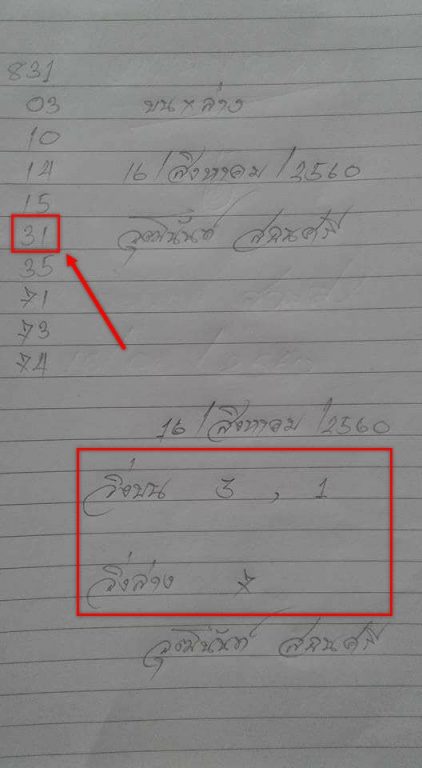 831
03 บน x ล่าง
10
14 16 / สิงหาคม / 2560
15
31
35
71
73
74
16 / สิงหาคม / 2560
วิ่งบน 3 , 1
วิ่งล่าง 7